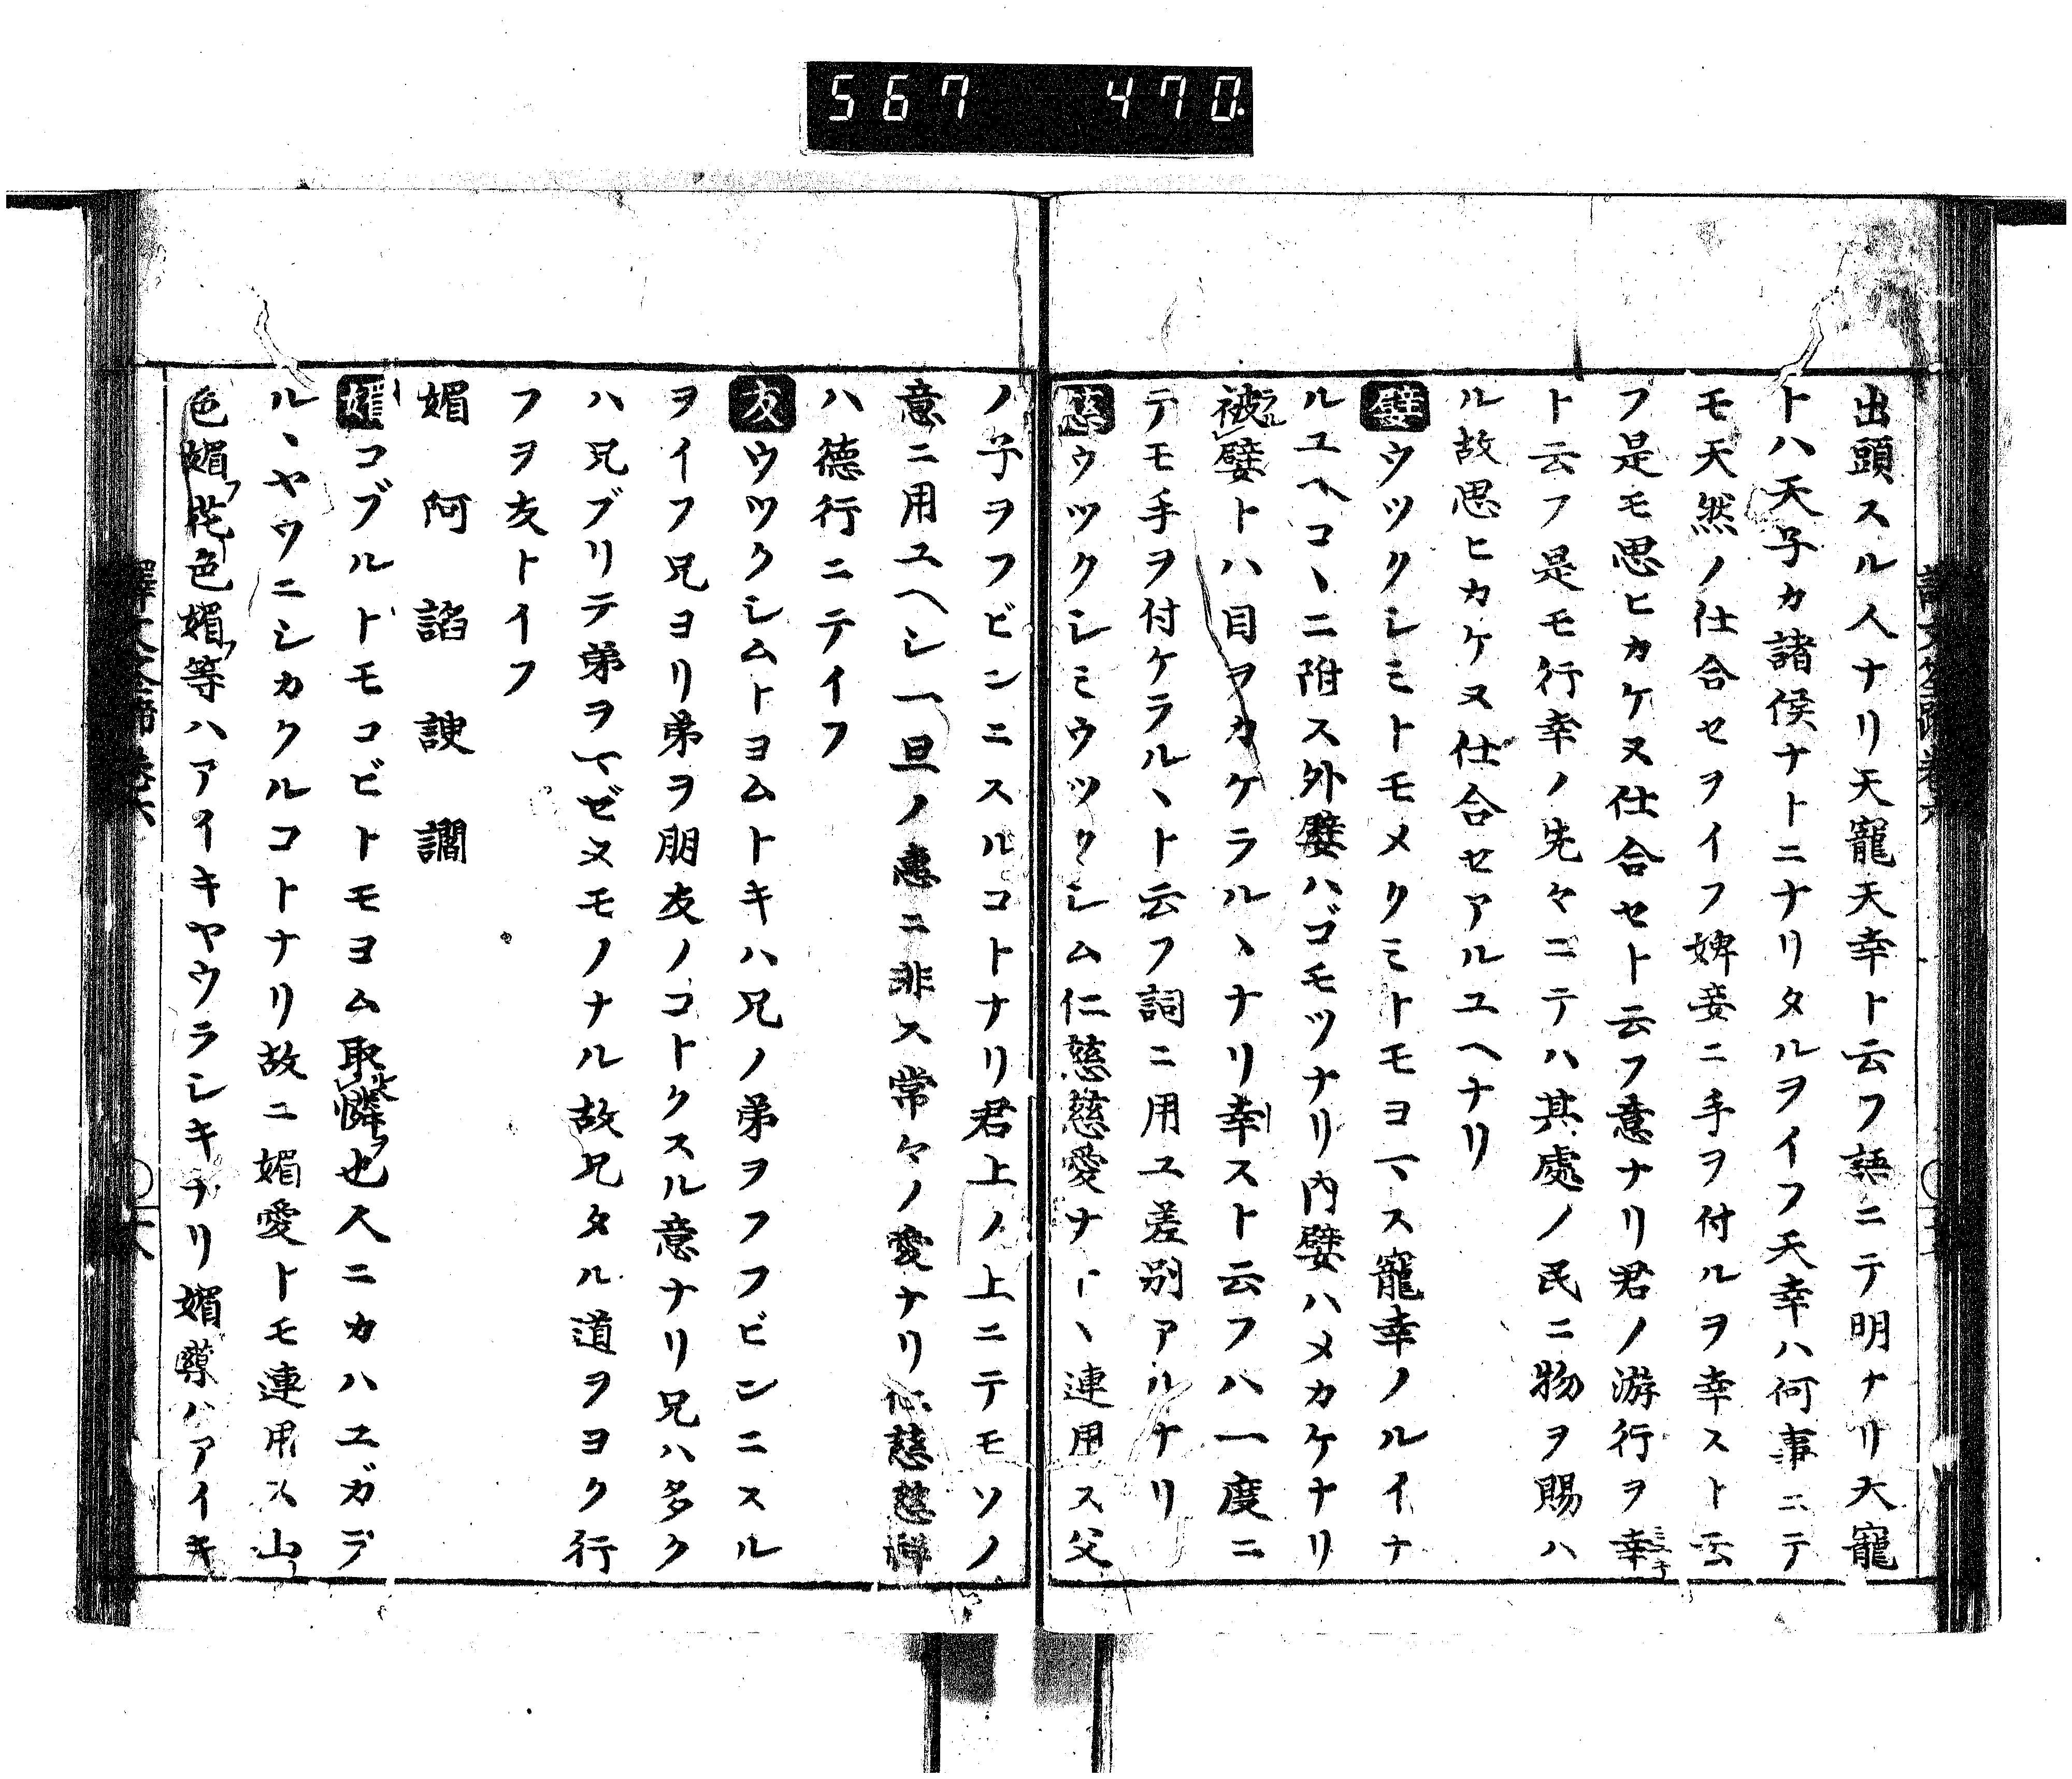 567 470
出頭スル人ナリ天寵天幸ト云フ語ニテ明ナリ天寵
トハ天子カ諸侯ナトニナリタルヲイフ天幸ハ何事ニテ
モ天然ノ仕合セヲイフ婢妾ニ手ヲ付ルヲ幸スト云
フ是モ思ヒカケヌ仕合セト云フ意ナリ君ノ游行ヲ幸
ト云フ是モ行幸ノ先々ニテハ其處ノ民ニ物ヲ賜ハ
ル故思ヒカケヌ仕合セアルユヘナリ
嬖ウツクシミトモメクミトモヨマス寵幸ノルイナ
ルユヘコヽニ附ス外嬖ハゴモツナリ内嬖ハメカケナリ
被嬖トハ目ヲカケラルヽナリ幸スト云フハ一度ニ
テモ手ヲ付ケラルヽト云フ詞ニ用ユ差別アルナリ
慈ウツクシミウツクシム仁慈慈愛ナトヽ連用ス父
ノ子ヲフビンニスルコトナリ君上ノ上ニテモソノ
意ニ用ユヘシ一旦ノ恵ニ非ス常々ノ愛ナリ慈慈
ハ德行ニテイフ
友ウツクシムトヨムトキハ兄ノ弟ヲフフビンニスル
ヲイフ兄ヨリ弟ヲ朋友ノコトクスル意ナリ兄ハ多ク
ハ兄ブリテ弟ヲマゼヌモノナル故兄タル道ヲヨク行
フヲ友トイフ
媚 阿 諂 諛 讇
媚コブルトモコビトモヨム取憐也人ニカハユガデ
ルヽヤウニシカクルコトナリ故ニ媚愛トモ連用ス山
色媚花色媚等ハアイキヤウラシキナリ媚ハアイキ